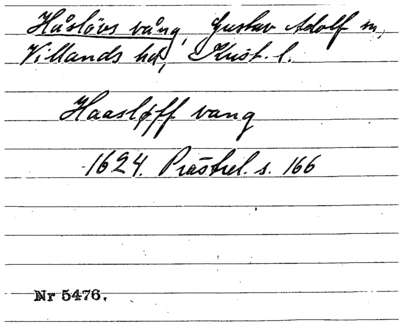 Håslövs vång, Gustav Adolf sn,
Villands hd, Krist. l.
Haasløff vang
1624. Prästrel. s. 166
Nr 5476.